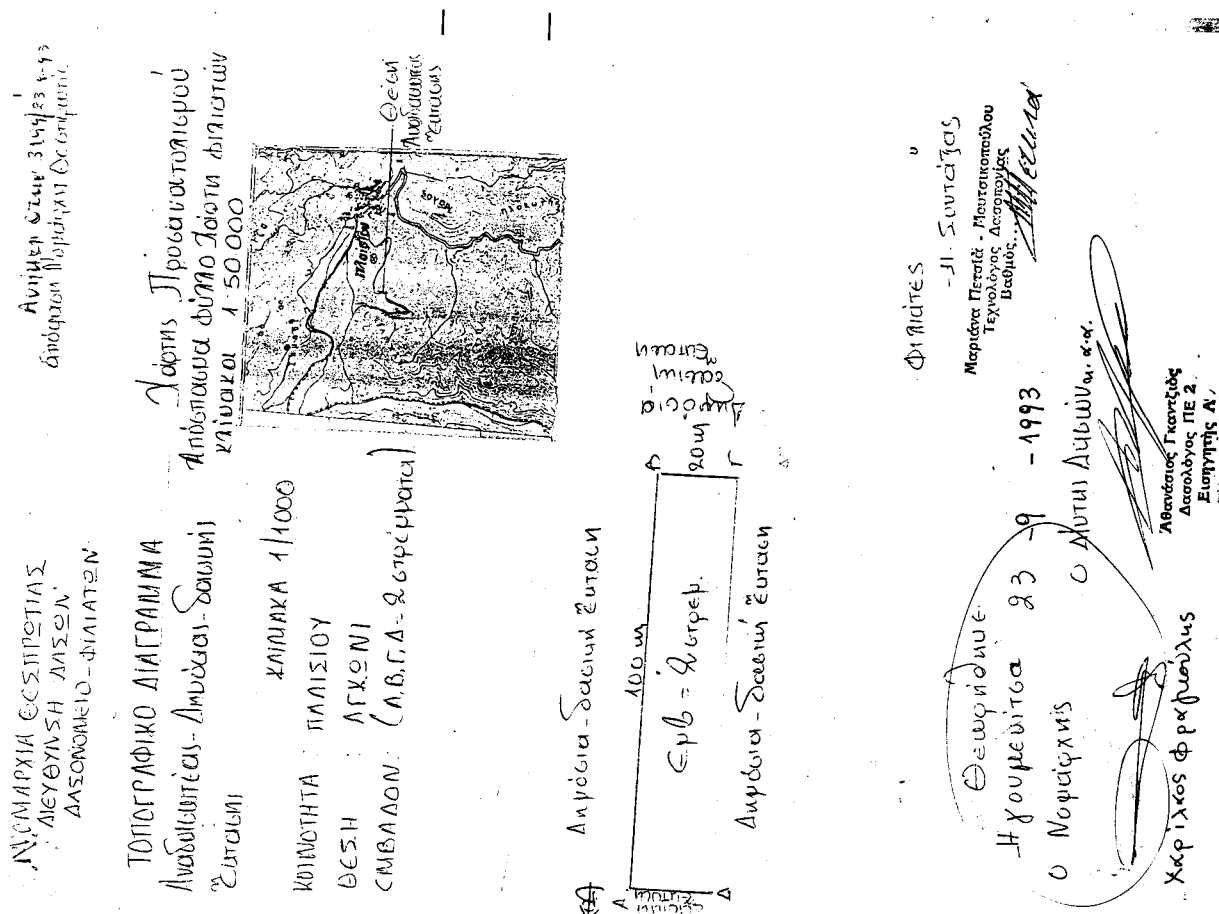 ΝΟΜΑΡΧΙΑ ΘΕΣΠΡΩΤΙΑΣ
ΔΙΕΥΘΥΝΣΗ ΔΑΣΩΝ
ΔΑΣΟΝΟΜΕΙΟ-ΦΙΛΙΑΤΩΝ
Ανήκει στην 3199/23-9-93
απόφαση Νομάρχη Θεσπρωτίας
ΤΟΠΟΓΡΑΦΙΚΟ ΔΙΑΓΡΑΜΜΑ
Αναδασωτέας-Δημόσιας-δασικής
Έκτασης
ΚΛΙΜΑΚΑ 1/1000
ΚΟΙΝΟΤΗΤΑ : ΠΛΑΙΣΙΟΥ
ΘΕΣΗ : ΑΓΚΩΝΙ
ΕΜΒΑΔΟΝ: (Α.Β.Γ.Δ= 2 στρέμματα)
Χάρτης Προσανατολισμού
Απόσπασμα Φύλλο Χάρτη Φιλιατών
κλίμακα 1 50000
Πλαίσιον
Θέση
Αναδασωτέας
Έκτασης
Δημόσια-δασική Έκταση
Α
100 m
Β
Εμβ = 2 στρεμ.
20 m
Δημόσια
δασική
Έκταση
Δ
Γ
Δημόσια-δασική Έκταση
Φιλιάτες
-Η Συντάξας
Μαριάνα Πεταλά - Μουτσικοπούλου
Τεχνολόγος Δασοπονίας
Βαθμός
Θεωρήθηκε
Ηγουμενίτσα 23 -9 -1993
Ο Νομάρχης
Ο Δ/ντης Δασών κ.α.α.
Χαρίλαος Φραγκούλης
Αθανάσιος Γκαντζιός
Δασολόγος ΠΕ 2
Εισηγητής Α'.